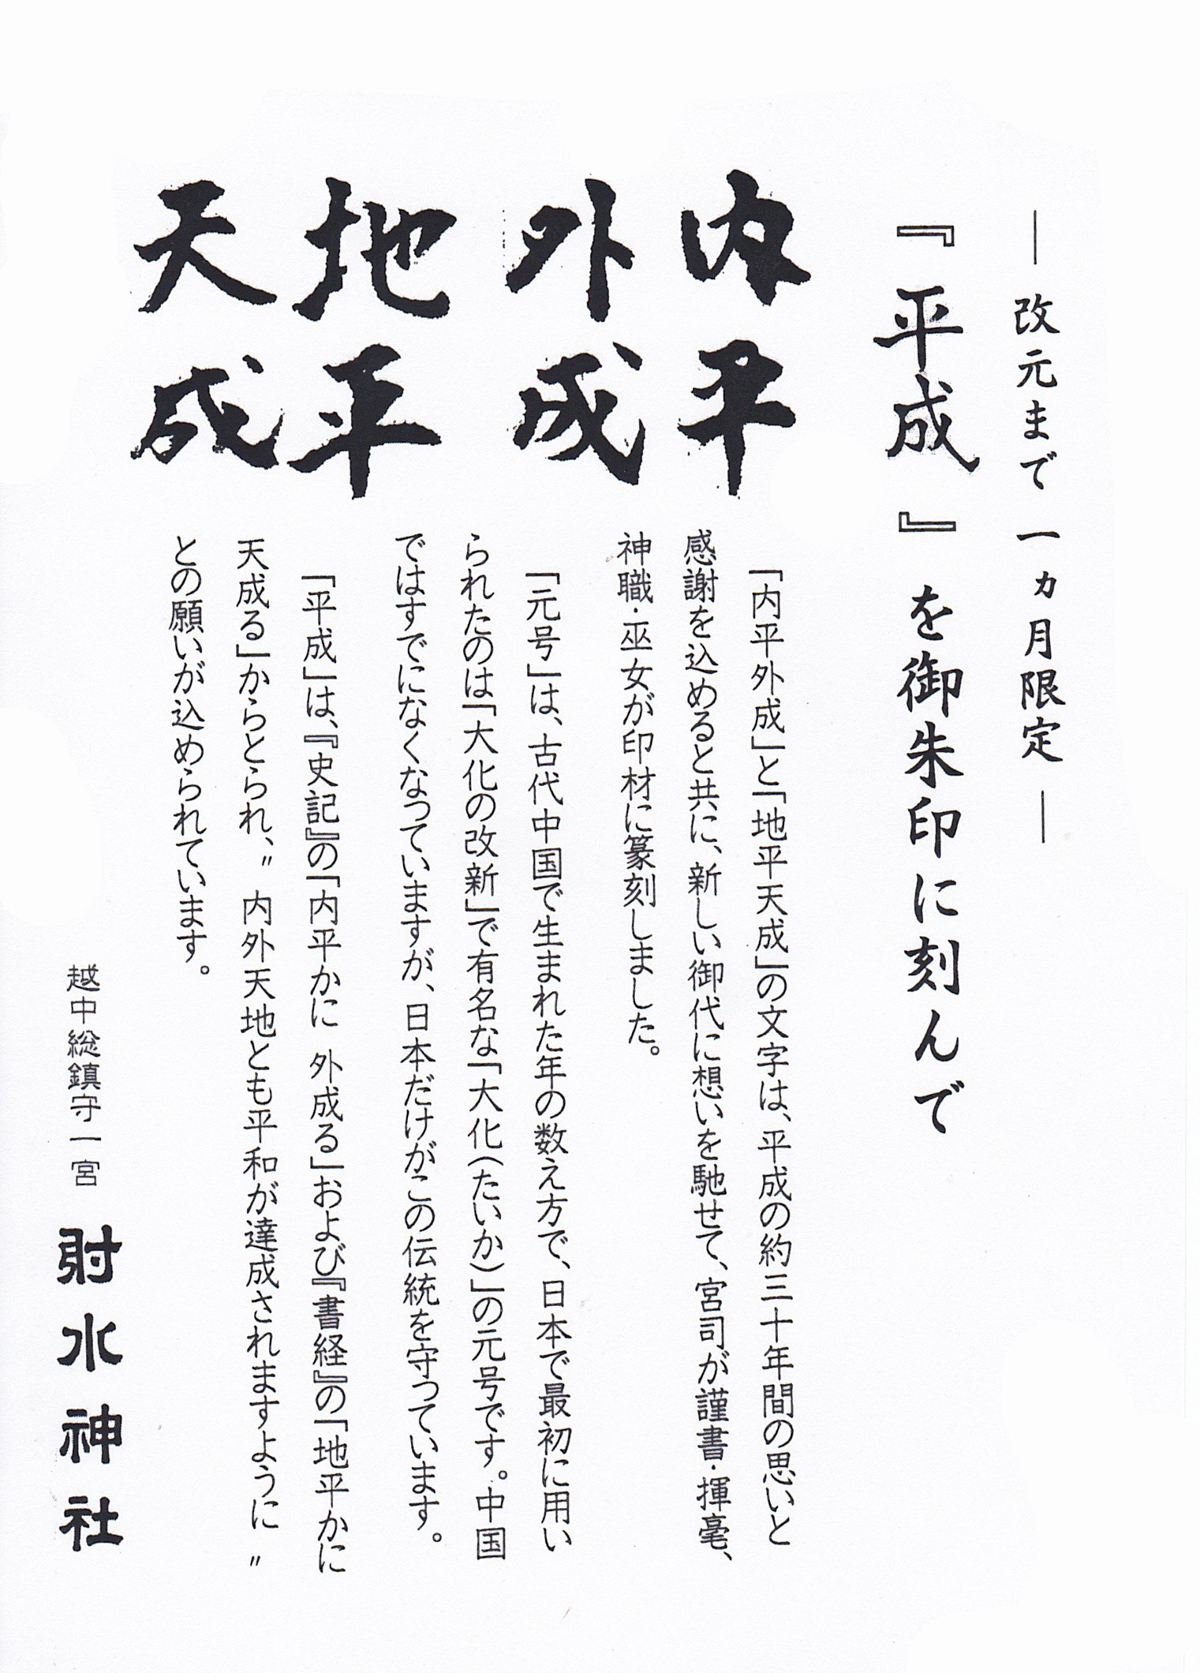 ―改元まで一ヵ月限定―
『平成』を御朱印に刻んで
内平
外成
地平
天成
「内平外成」と「地平天成」の文字は、平成の約三十年間の思いと
感謝を込めると共に、新しい御代に想いを馳せて、宮司が謹書・揮毫、
神職・巫女が印材に篆刻しました。
「元号」は、古代中国で生まれた年の数え方で、日本で最初に用い
られたのは「大化の改新」で有名な「大化(たいか)」の元号です。中国
ではすでになくなっていますが、日本だけがこの伝統を守っています。
「平成」は、『史記』の「内平かに 外成る」および『書経』の「地平かに
天成る」からとられ、〃内外天地とも平和が達成されますように〃
との願いが込められています。
越中総鎮守一宮 射水神社